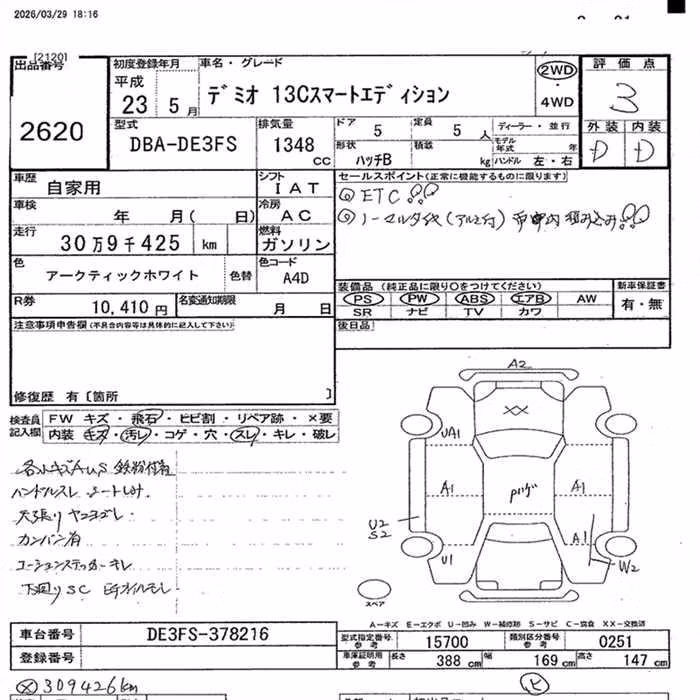 2026/03/29 18:16
[2120]
出品番号
2620
初度登録年月
平成
23 5 月
車名・グレード
デミオ 13Cスマートエディション
2WD
・
4WD
評価点
3
外装 内装
D D
型式
DBA-DE3FS
排気量
1348
CC
ドア 5
定員 5 人
ディーラー・並行
モデル年式 年
形状 ハッチB
積載 kg
ハンドル 左・右
車歴
自家用
シフト
I AT
車検
年 月( 日)
冷房
AC
走行
30万9千425 km
燃料
ガソリン
色
アークティックホワイト
色替
色コード
A4D
R券
10,410 円
名変通知期限
月 日
セールスポイント(正常に機能するものに限ります)
◎ ETC!!
◎ ノーマルタイヤ(アルミ付) 車内積み込み!!
装備品 (純正品に限り○をつけてください)
PS PW ABS エアB AW
SR ナビ TV カワ
新車保証書
有・無
注意事項申告欄(不具合内容等は具体的に記入して下さい)
後日品
修復歴 有〔箇所 〕
検査員記入欄
FW キズ・飛石・ヒビ割・リペア跡・×要
内装 キズ・汚レ・コゲ・穴・スレ・キレ・破レ
各小キズAUS 鉄粉付着
ハンドルスレ シートしみ.
天張り ヤニヨゴレ
カンバン有
コーションステッカーキレ
下廻りSC 
A2
XX
UA1
A1
A1
U2
S2
A1
U1
W2
スペア
A−キズ E−エクボ U−凹み W−補修跡 S−サビ C−腐食 XX−交換済
車台番号
DE3FS-378216
登録番号
型式指定番号参考
15700
類別区分番号参考
0251
車庫証明用参考
長さ 388 cm
幅 169 cm
高さ 147 cm
309426km